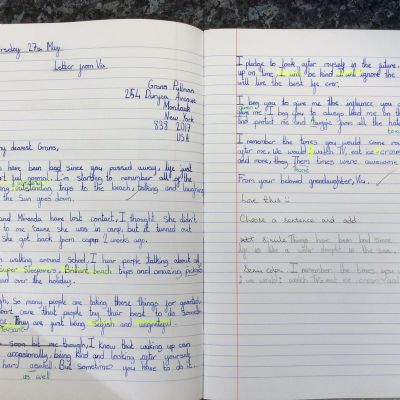 rsday 27th May
Letter from Via
Grans Pullman
254 Avenue
Montauk
New York
833 2017
USA
my dearest Grans,
have been bad since you passed away, life just
normal. I'm starting to remember all of the
outstanding trips to the beach, talking and laughing
the sun goes down.
and Miranda have lost contact, I thought she didn't
to me cause she was in camp but it turned out
she got back from camp 2 weeks ago.
walking around school, I hear people talking about all
super sleepovers, Brilliant beach trips and amazing picnics
had over the holiday.
so many people are taking these things for granted
don't care that people try their best to do something
They are just being selfish and ungrateful.
soon hit me though, I know that waking up can
occasionally, being kind and looking after yourself
hard aswell. But sometimes you have to do it.
as well
I pledge to look after myself in the future,
up on time, I will be kind I will ignore the
will live the best life ever.
I beg you to give me the influence you
give me I beg you to always lead me on the
and protect me and Auggie from all the
I remember the times you would come
me, we would watch TV, eat ice cream
and more, Them times were awesome
Those
From your beloved granddaughter, Via.
Love this!
Choose a sentence and add
Simile Things have been bad since
life is like a
I remember the times you
we would watch TV, eat ice cream and